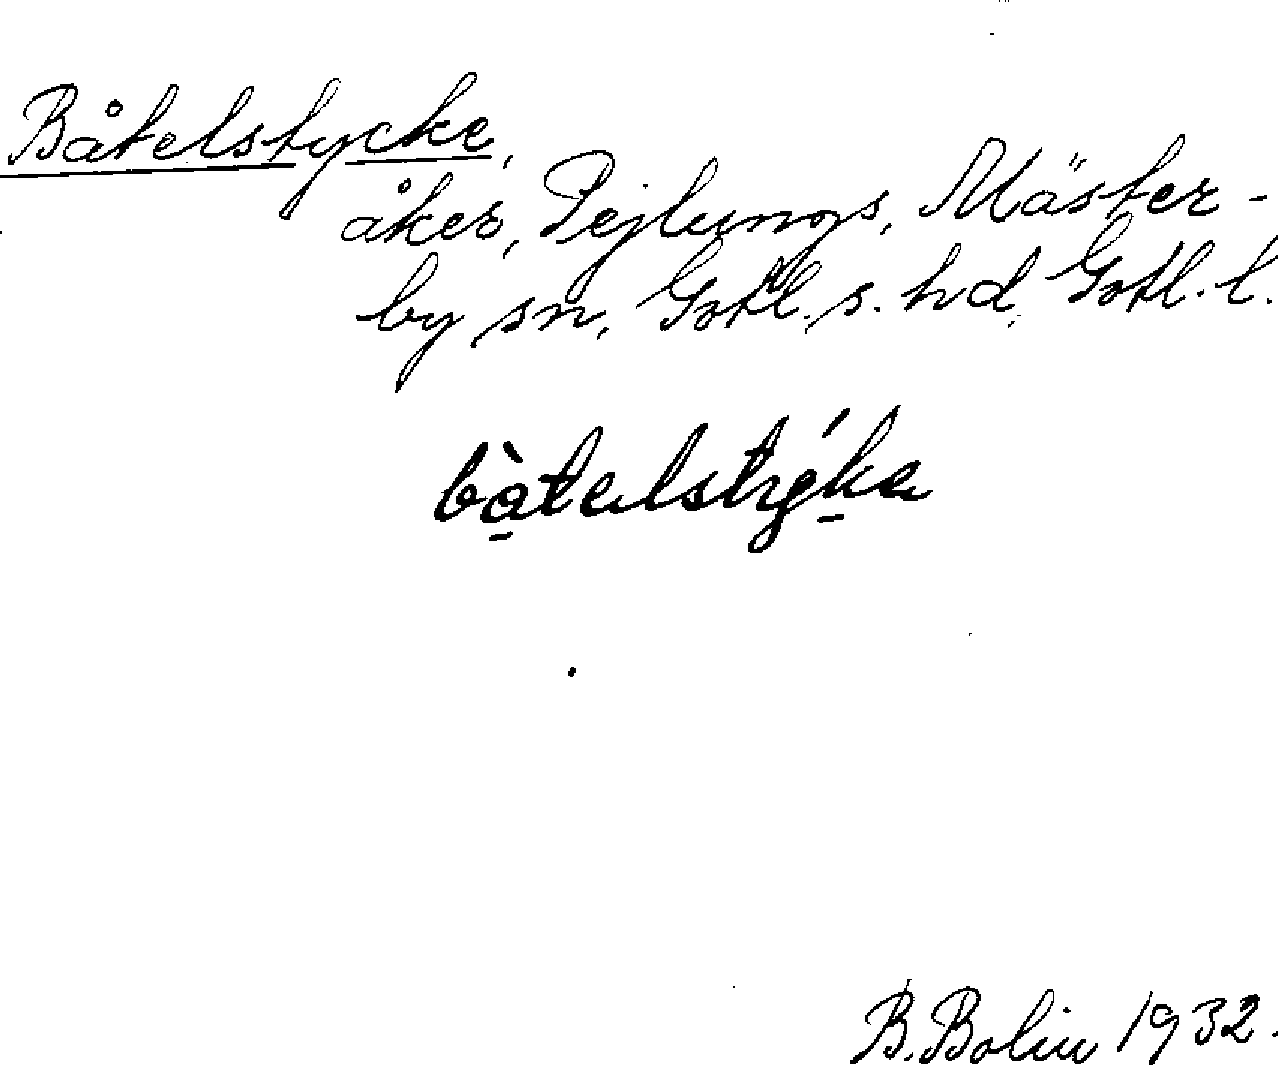 Båtelstycke,
åker, Pejlungs, Mäster-
by sn, Gotl. s. hd, Gotl. l.
bàtelstýka
B. Bolin 1932.